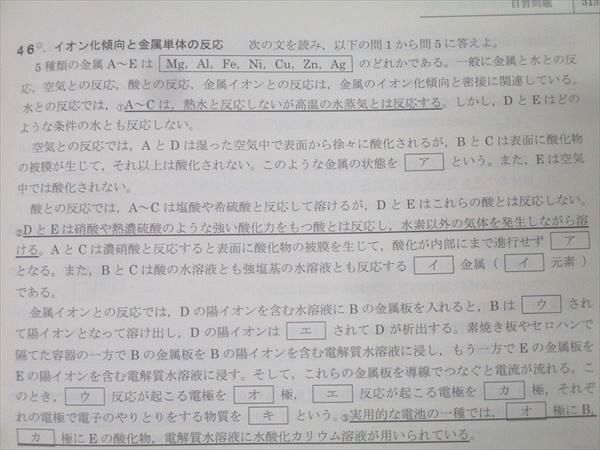 自習問題 313
46. イオン化傾向と金属単体の反応 次の文を読み，以下の問1から問5に答えよ。
5種類の金属A～Eは Mg, Al, Fe, Ni, Cu, Zn, Ag のどれかである。一般に金属と水との反
応，空気との反応，酸との反応，金属イオンとの反応は，金属のイオン化傾向と密接に関連している。
水との反応では，①A～Cは，熱水と反応しないが高温の水蒸気とは反応する。しかし，DとEはどの
ような条件の水とも反応しない。
空気との反応では，AとDは湿った空気中で表面から徐々に酸化されるが，BとCは表面に酸化物
の被膜が生じて，それ以上は酸化されない。このような金属の状態を ア という。また，Eは空気
中では酸化されない。
酸との反応では，A～Cは塩酸や希硫酸と反応して溶けるが，DとEはこれらの酸とは反応しない。
②DとEは硝酸や熱濃硫酸のような強い酸化力をもつ酸とは反応し，水素以外の気体を発生しながら溶
ける。AとCは濃硝酸と反応すると表面に酸化物の被膜を生じて，酸化が内部にまで進行せず ア
となる。また，BとCは酸の水溶液とも強塩基の水溶液とも反応する イ 金属（ イ 元素）
である。
金属イオンとの反応では，Dの陽イオンを含む水溶液にBの金属板を入れると，Bは ウ され
て陽イオンとなって溶け出し，Dの陽イオンは エ されてDが析出する。素焼き板やセロハンで
隔てた容器の一方でBの金属板をBの陽イオンを含む電解質水溶液に浸し，もう一方でEの金属板を
Eの陽イオンを含む電解質水溶液に浸す。そして，これらの金属板を導線でつなぐと電流が流れる。こ
のとき， ウ 反応が起こる電極を オ 極， エ 反応が起こる電極を カ 極，それぞ
れの電極で電子のやりとりをする物質を キ という。③実用的な電池の一種では， オ 極にB,
カ 極にEの酸化物，電解質水溶液に水酸化カリウム溶液が用いられている。